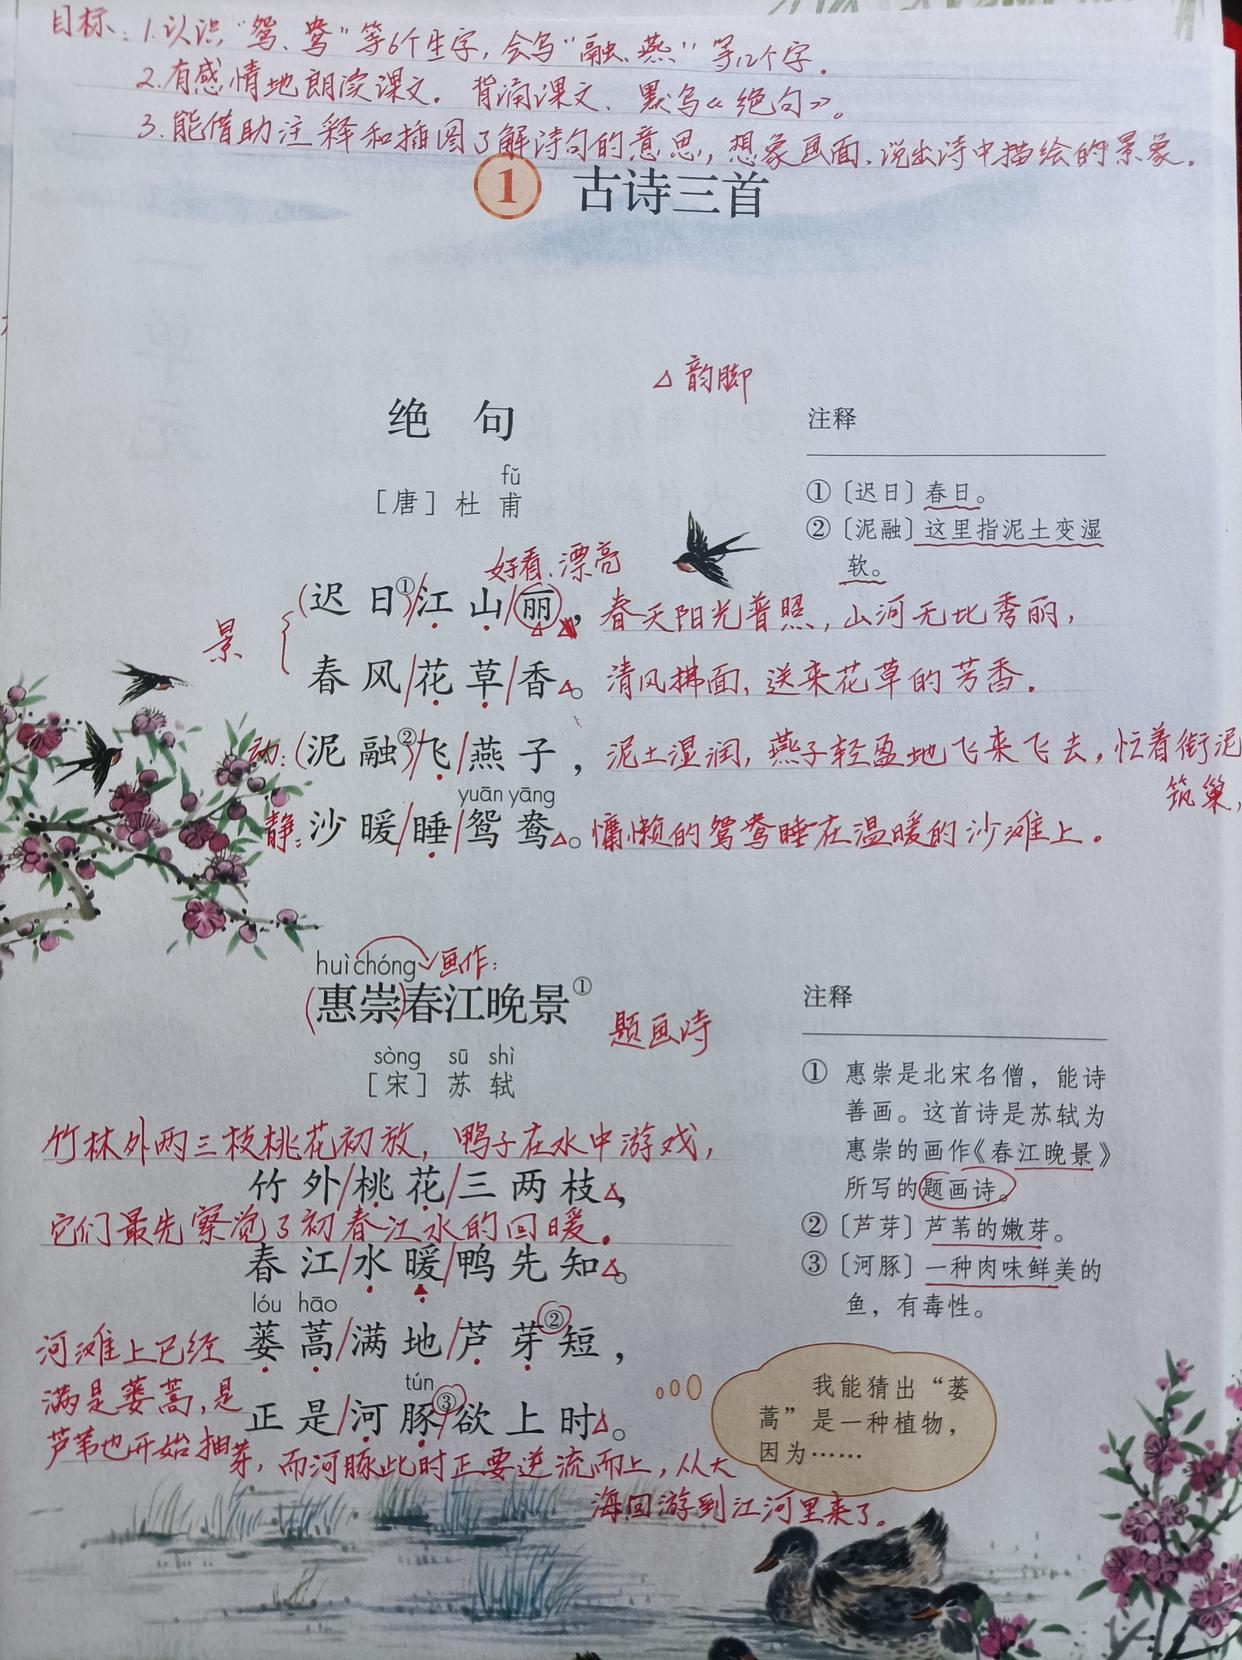 目标：1.认识“鸳、鸯”等6个生字，会写“融、燕”等12个字。
2.有感情地朗读课文。背诵课文、默写《绝句》。
3.能借助注释和插图了解诗句的意思，想象画面、说出诗中描绘的景象。
1 古诗三首
△韵脚
绝句
注释
fǔ
［唐］杜甫
①〔迟日〕春日。
②〔泥融〕这里指泥土变湿
软。
好看、漂亮
景
(迟日①)/江山/丽△，春天阳光普照，山河无比秀丽，
春风/花草/香△。清风拂面，送来花草的芳香。
动：(泥融②)/飞/燕子，泥土湿润，燕子轻盈地飞来飞去，忙着衔泥
筑巢，
yuān yāng
静：沙暖/睡/鸳鸯△。慵懒的鸳鸯睡在温暖的沙滩上。
huì chóng 画作：
(惠崇)春江晚景①
题画诗
sòng sū shì
［宋］苏轼
注释
①惠崇是北宋名僧，能诗
善画。这首诗是苏轼为
惠崇的画作《春江晚景》
所写的题画诗。
②〔芦芽〕芦苇的嫩芽。
③〔河豚〕一种肉味鲜美的
鱼，有毒性。
竹林外两三枝桃花初放，鸭子在水中游戏，
竹外/桃花/三两枝△，
它们最先察觉了初春江水的回暖。
春江/水暖/鸭先知△。
lóu hāo
蒌蒿/满地/芦芽②短，
tún
正是/河豚③/欲上时△。
河滩上已经
满是蒌蒿，是
芦苇也开始抽
芽，而河豚此时正要逆流而上，从大
海回游到江河里来了。
我能猜出“蒌
蒿”是一种植物，
因为……